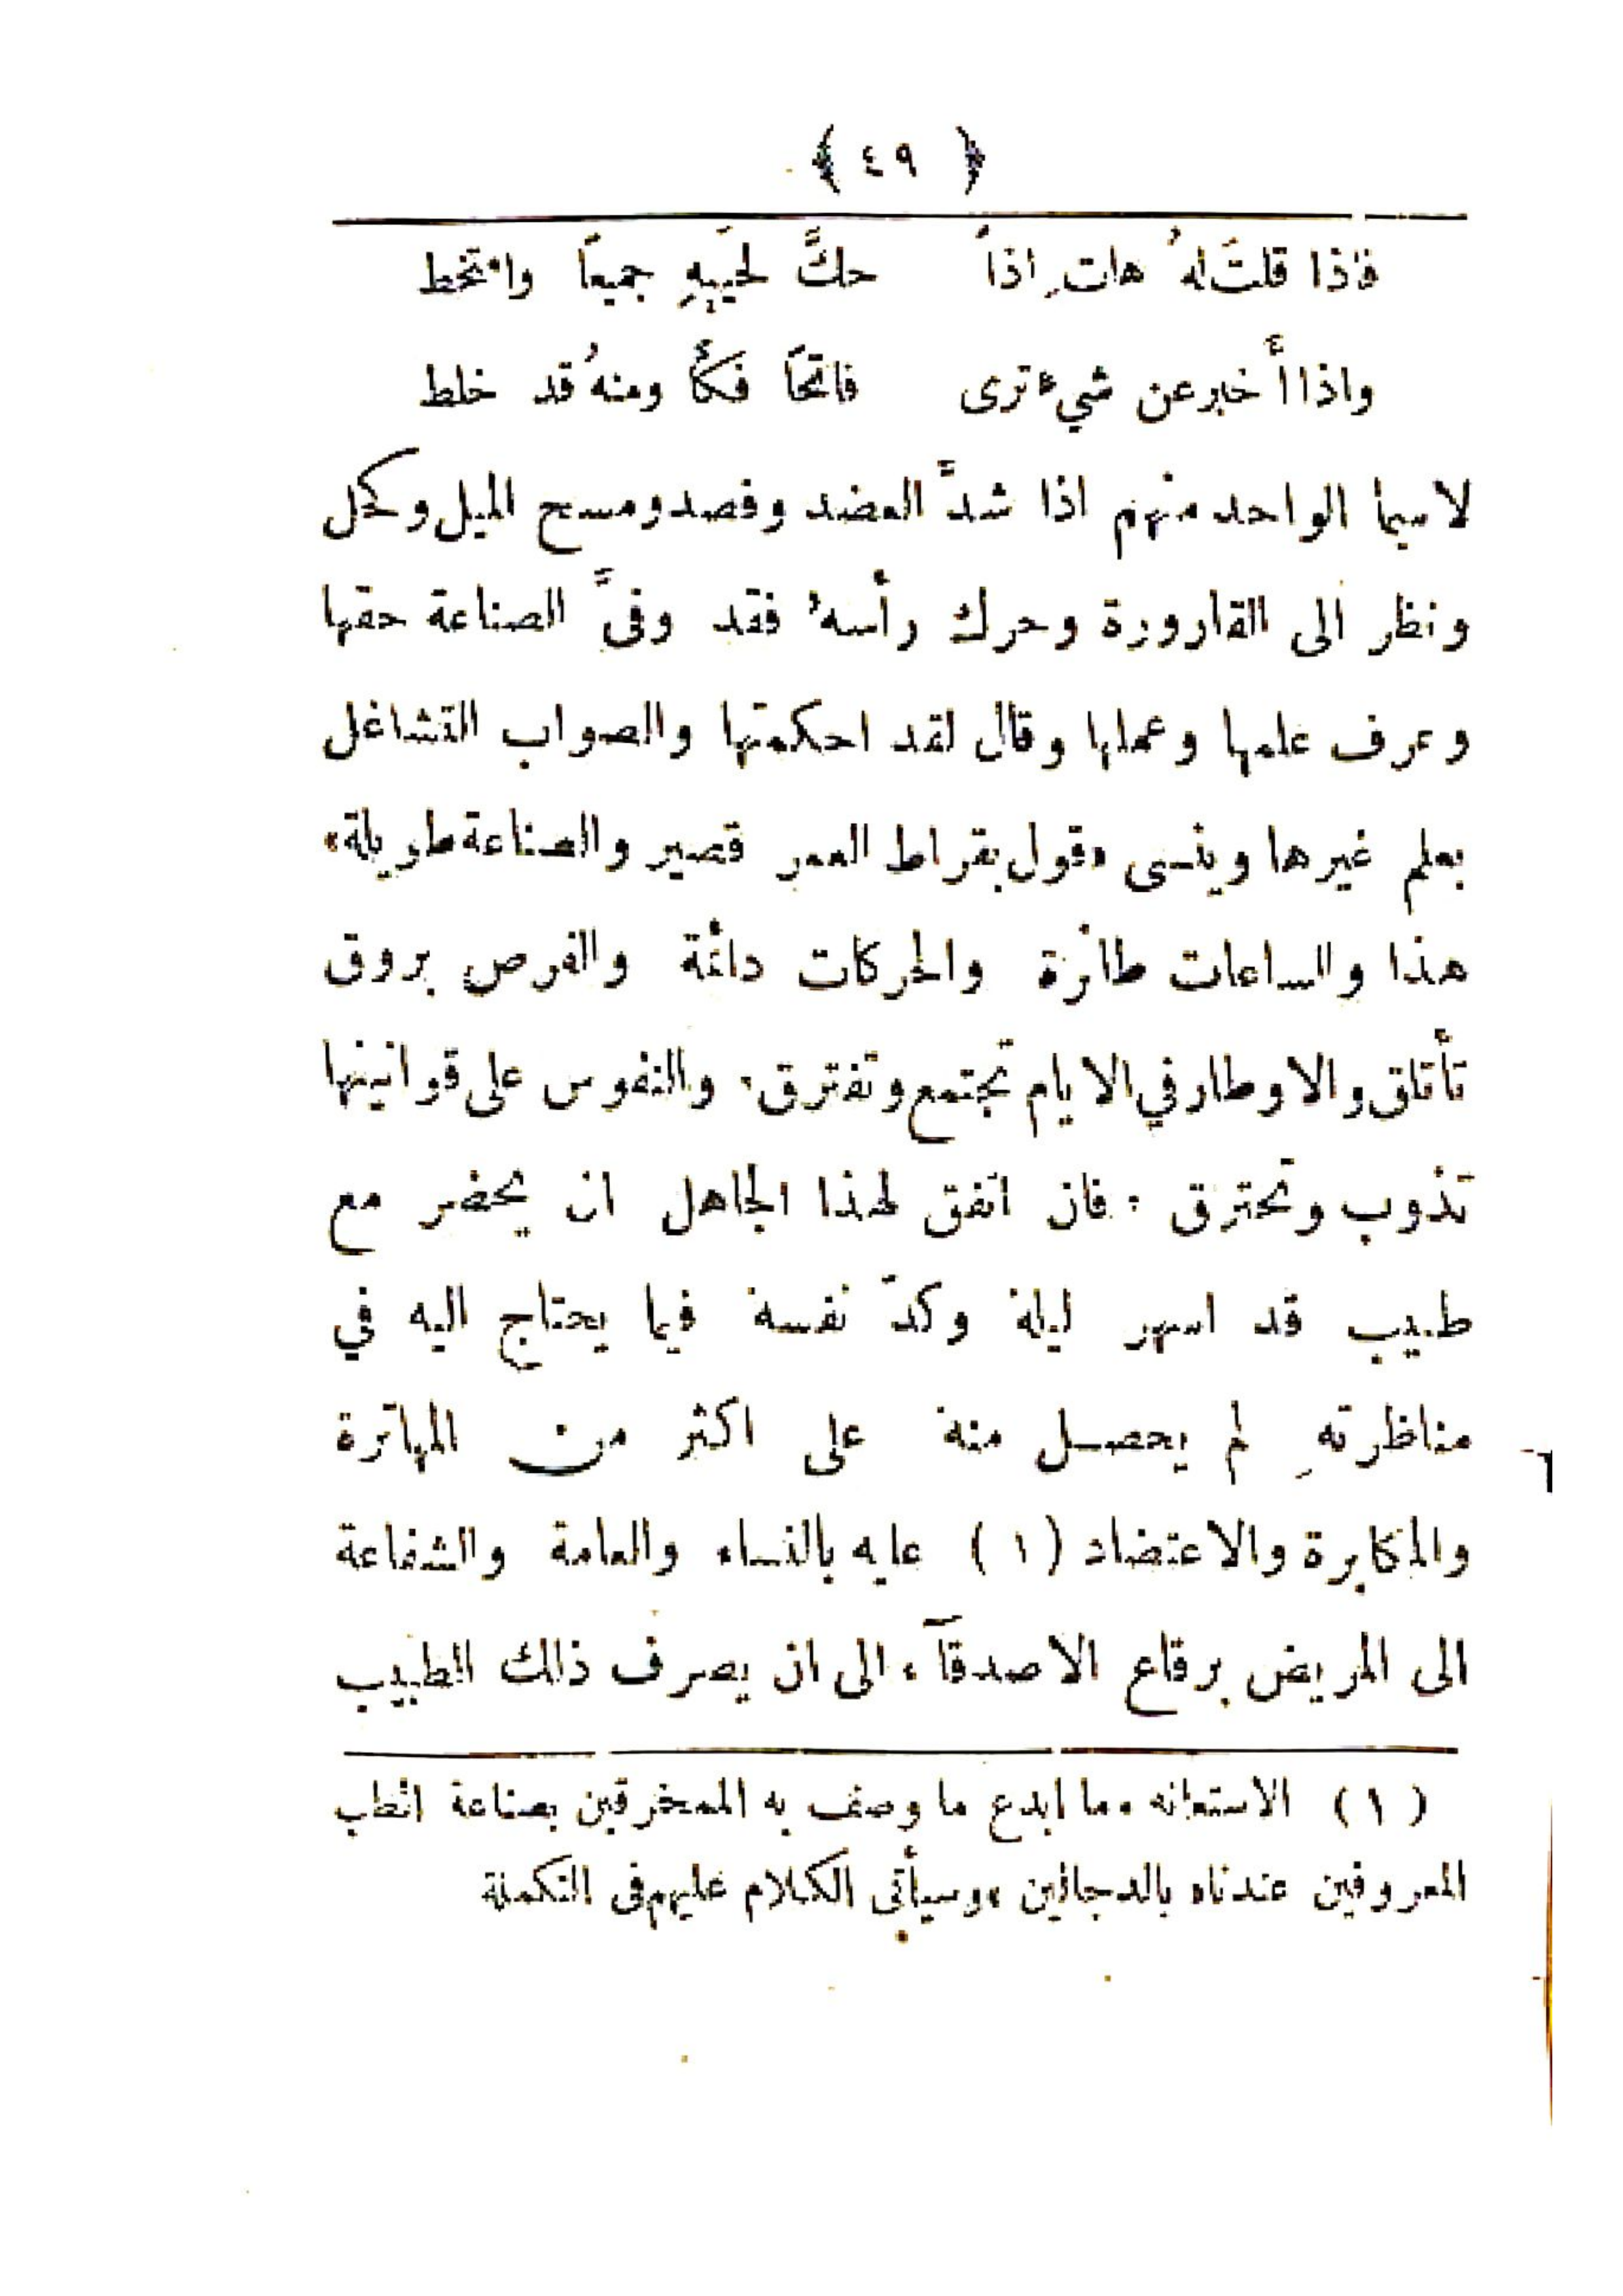 ﴿ ٤٩ ﴾
فاذا قلتَ لهُ هاتِ اذاً حكَّ لحيَيهِ جميعاً وامتخط
واذا أُخبر عن شيء ترى فاتحًا فكأ ومنهُ قد خلط
لاسيما الواحد منهم اذا شدَّ العضد وفصد ومسح الميل وكحل
ونظر الى القارورة وحرك رأسهُ فقد وفىَّ الصناعة حقها
وعرف علمها وعملها وقال لقد احكمتها والصواب التشاغل
بعلم غيرها وينسى «قول بقراط العمر قصير والصناعة طويلة»
هذا والساعات طائرة والحركات دائمة والفرص بروق
تأتلق والاوطار في الايام تجتمع وتفترق، والنفوس على قوانينها
تذوب وتحترق : فان اتفق لهذا الجاهل ان يحضر مع
طبيب قد اسهر ليلهُ وكدّ نفسهُ فيما يحتاج اليه في
مناظرتهِ لم يحصل منهُ على اكثر من المهاترة
والمكابرة والاعتضاد (١) عليه بالنساء والعامة والشفاعة
الى المريض برقاع الاصدقآء الى ان يصرف ذلك الطبيب
(١) الاستعانه وما ابدع ما وصف به الممخرقين بصناعة الطب
المعروفين عندناه بالدجالين «وسيأتي الكلام عليهم فى التكملة